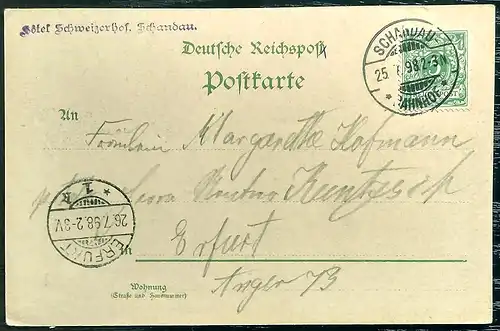 Hôtel Schweizerhof, Schandau.
Deutsche Reichspost
Postkarte
SCHANDAU
25. 7. 98. 2-3 N
* BAHNHOF *
An
Fräulein Margarethe Hofmann
Herrn
Erfurt
26.7.98.2-3V.
* 1 *
in Erfurt
Anger 73
Wohnung
(Straße und Hausnummer)